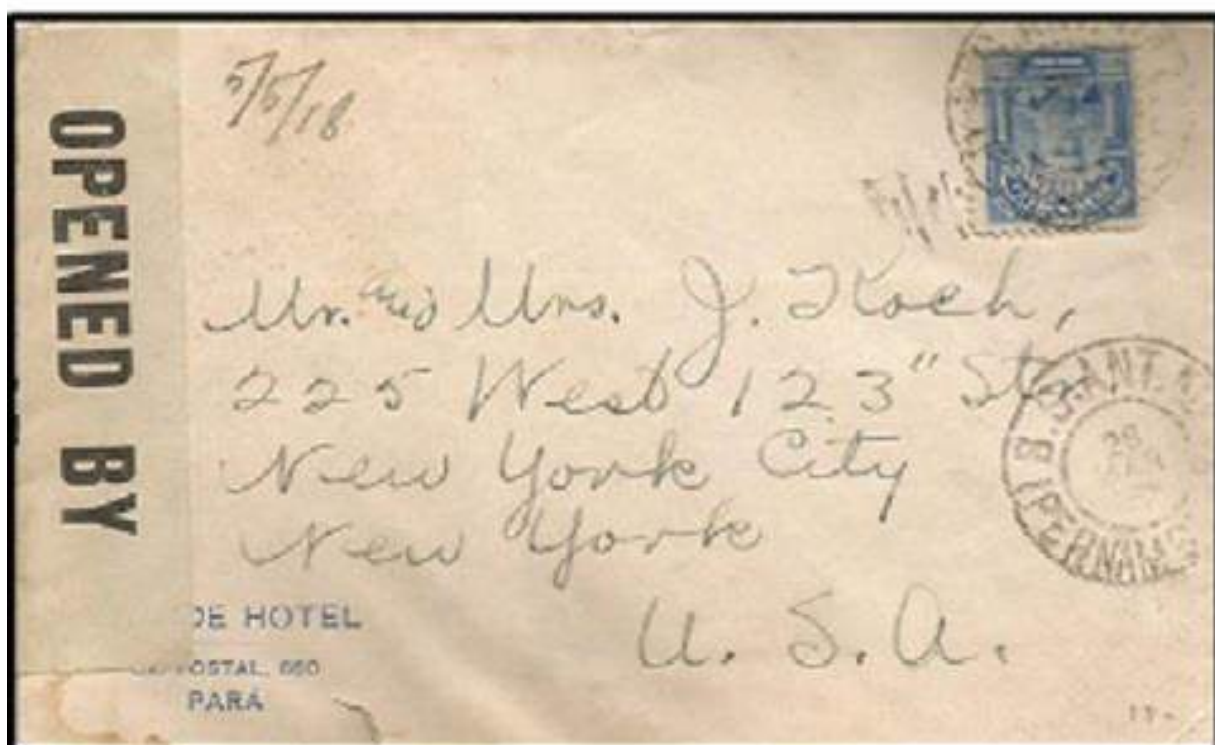 OPENED BY
5/5/18
Mr. and Mrs. J. Koch,
225 West 123" Str
New York City
New York
U. S. A.
DE HOTEL
POSTAL, 660
PARÁ